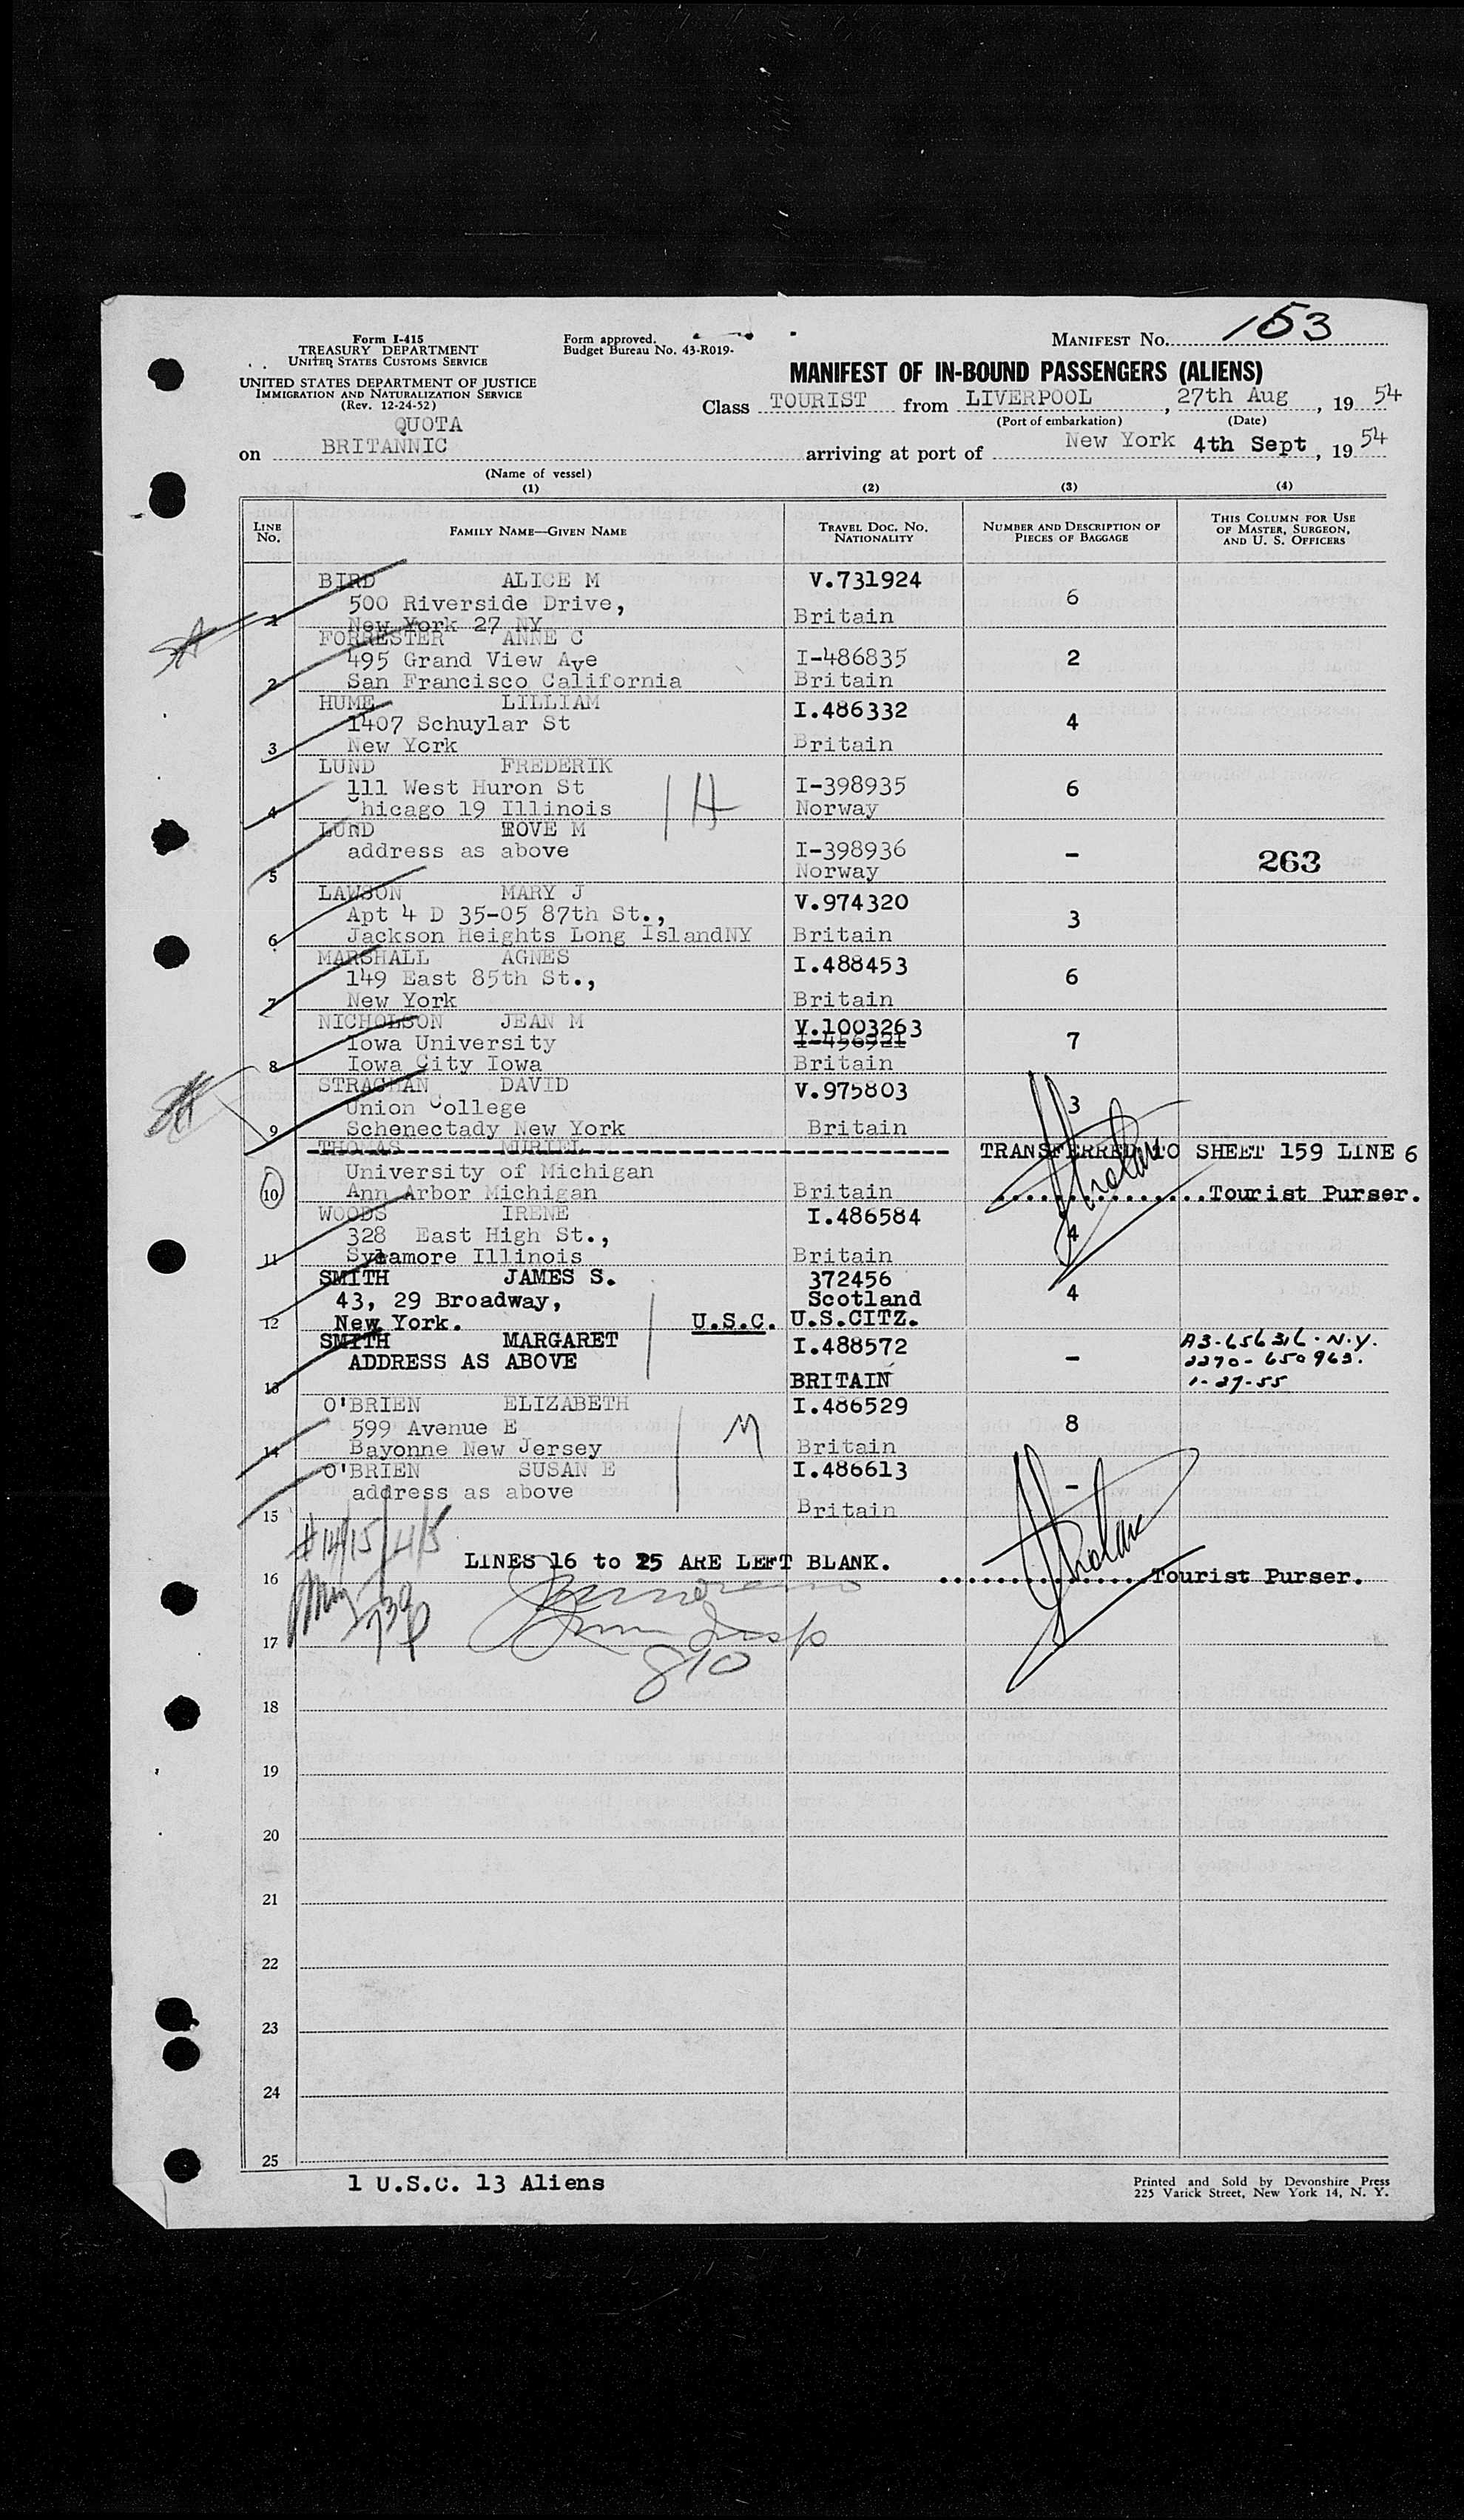 Form I-415
TREASURY DEPARTMENT
UNITED STATES CUSTOMS SERVICE
UNITED STATES DEPARTMENT OF JUSTICE
IMMIGRATION AND NATURALIZATION SERVICE
(Rev. 12-24-52)
Form approved.
Budget Bureau No. 43-R019-
MANIFEST No. 153
MANIFEST OF IN-BOUND PASSENGERS (ALIENS)
Class TOURIST from LIVERPOOL, 27th Aug, 19 54
(Port of embarkation) (Date)
QUOTA
on BRITANNIC arriving at port of New York 4th Sept, 19 54
(Name of vessel)
(1) (2) (3) (4)
LINE No. FAMILY NAME—GIVEN NAME TRAVEL DOC. NO. NATIONALITY NUMBER AND DESCRIPTION OF PIECES OF BAGGAGE THIS COLUMN FOR USE OF MASTER, SURGEON, AND U. S. OFFICERS
BIRD ALICE M V.731924
500 Riverside Drive, 6
1 New York 27 NY Britain
FORRESTER ANNE C
495 Grand View Ave I-486835 2
2 San Francisco California Britain
HUME LILLIAM I.486332
1407 Schuylar St 4
3 New York Britain
LUND FREDERIK
111 West Huron St I-398935 6
4 Chicago 19 Illinois Norway
LUND TOVE M
address as above I-398936 - 263
5 Norway
LAWSON MARY J V.974320
Apt 4 D 35-05 87th St., 3
6 Jackson Heights Long IslandNY Britain
MARSHALL AGNES I.488453
149 East 85th St., 6
7 New York Britain
NICHOLSON JEAN M V.1003263
Iowa University I-456921 7
8 Iowa City Iowa Britain
STRACHAN DAVID V.975803
Union College 3
9 Schenectady New York Britain
THOMAS MURIEL TRANSFERRED TO SHEET 159 LINE 6
University of Michigan
10 Ann Arbor Michigan Britain Tourist Purser.
WOODS IRENE I.486584
328 East High St., 4
11 Sycamore Illinois Britain
SMITH JAMES S. 372456
43, 29 Broadway, Scotland 4
12 New York. U.S.C. U.S.CITZ.
SMITH MARGARET I.488572 A3-656316-N.Y.
ADDRESS AS ABOVE - 2270-650963.
13 BRITAIN 1-27-55
O'BRIEN ELIZABETH I.486529
599 Avenue E M 8
14 Bayonne New Jersey Britain
O'BRIEN SUSAN E I.486613
address as above -
15 Britain
#14/15
LINES 16 to 25 ARE LEFT BLANK.
16 Tourist Purser.
17
810
18
19
20
21
22
23
24
25
1 U.S.C. 13 Aliens
Printed and Sold by Devonshire Press
225 Varick Street, New York 14, N. Y.